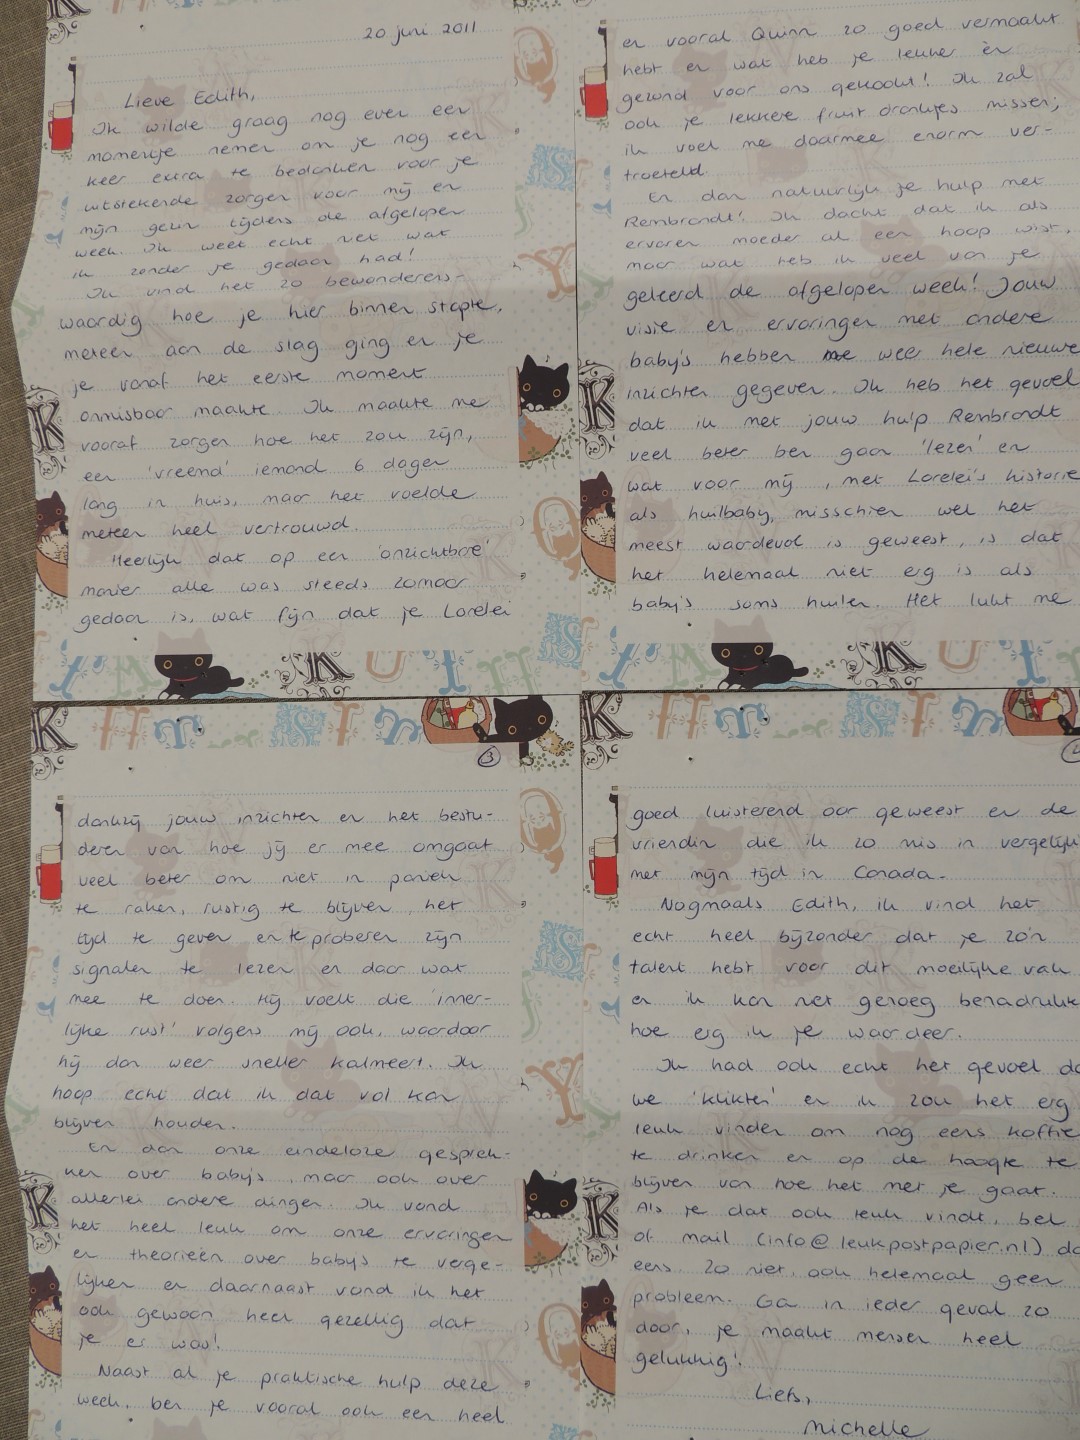 20 juni 2011
Lieve Edith,
Ik wilde graag nog even een
momentje nemen om je nog een
keer extra te bedanken voor je
uitstekende zorgen voor mij en
mijn gezin tijdens de afgelopen
week. Ik weet echt niet wat
ik zonder je gedaan had!
Ik vind het zo bewonderens-
waardig hoe je hier binnen stapte,
meteen aan de slag ging en je
je vanaf het eerste moment
onmisbaar maakte. Ik maakte me
vooraf zorgen hoe het zou zijn,
een 'vreemd' iemand 6 dagen
lang in huis, maar het voelde
meteen heel vertrouwd.
Heerlijk dat op een 'onzichtbare'
manier alle was steeds zomaar
gedaan is, wat fijn dat je Lorelei
en vooral Quinn zo goed vermaakt
hebt en wat heb je lekker èn
gezond voor ons gekookt! Ik zal
ook je lekkere fruit drankjes missen;
ik voel me daarmee enorm ver-
troeteld.
En dan natuurlijk je hulp met
Rembrandt! Ik dacht dat ik als
ervaren moeder al een hoop wist,
maar wat heb ik veel van je
geleerd de afgelopen week! Jouw
visie en ervaringen met andere
baby's hebben me weer hele nieuwe
inzichten gegeven. Ik heb het gevoel
dat ik met jouw hulp Rembrandt
veel beter ben gaan 'lezen' en
wat voor mij, met Lorelei's historie
als huilbaby, misschien wel het
meest waardevol is geweest, is dat
het helemaal niet erg is als
baby's soms huilen. Het lukt me
3
dankzij jouw inzichten en het bestu-
deren van hoe jij er mee omgaat
veel beter om niet in paniek
te raken, rustig te blijven, het
tijd te geven en te proberen zijn
signalen te lezen en daar wat
mee te doen. Hij voelt die 'inner-
lijke rust' volgens mij ook, waardoor
hij dan weer sneller kalmeert. Ik
hoop echt dat ik dat vol kan
blijven houden.
En dan onze eindeloze gesprek-
ken over baby's, maar ook over
allerlei andere dingen. Ik vond
het heel leuk om onze ervaringen
en theorieën over baby's te verge-
lijken en daarnaast vond ik het
ook gewoon heel gezellig dat
je er was!
Naast al je praktische hulp deze
week, ben je vooral ook een heel
goed luisterend oor geweest en de
vriendin die ik zo mis in vergelijk
met mijn tijd in Canada.
Nogmaals Edith, ik vind het
echt heel bijzonder dat je zo'n
talent hebt voor dit moeilijke vak
en ik kan niet genoeg benadruk
hoe erg ik je waardeer.
Ik had ook echt het gevoel da
we 'klikten' en ik zou het erg
leuk vinden om nog eens koffie
te drinken en op de hoogte te
blijven van hoe het met je gaat.
Als je dat ook leuk vindt, bel
of mail (info@leukpostpapier.nl) da
eens. Zo niet, ook helemaal geen
probleem. Ga in ieder geval zo
door, je maakt mensen heel
gelukkig!
Liefs,
Michelle